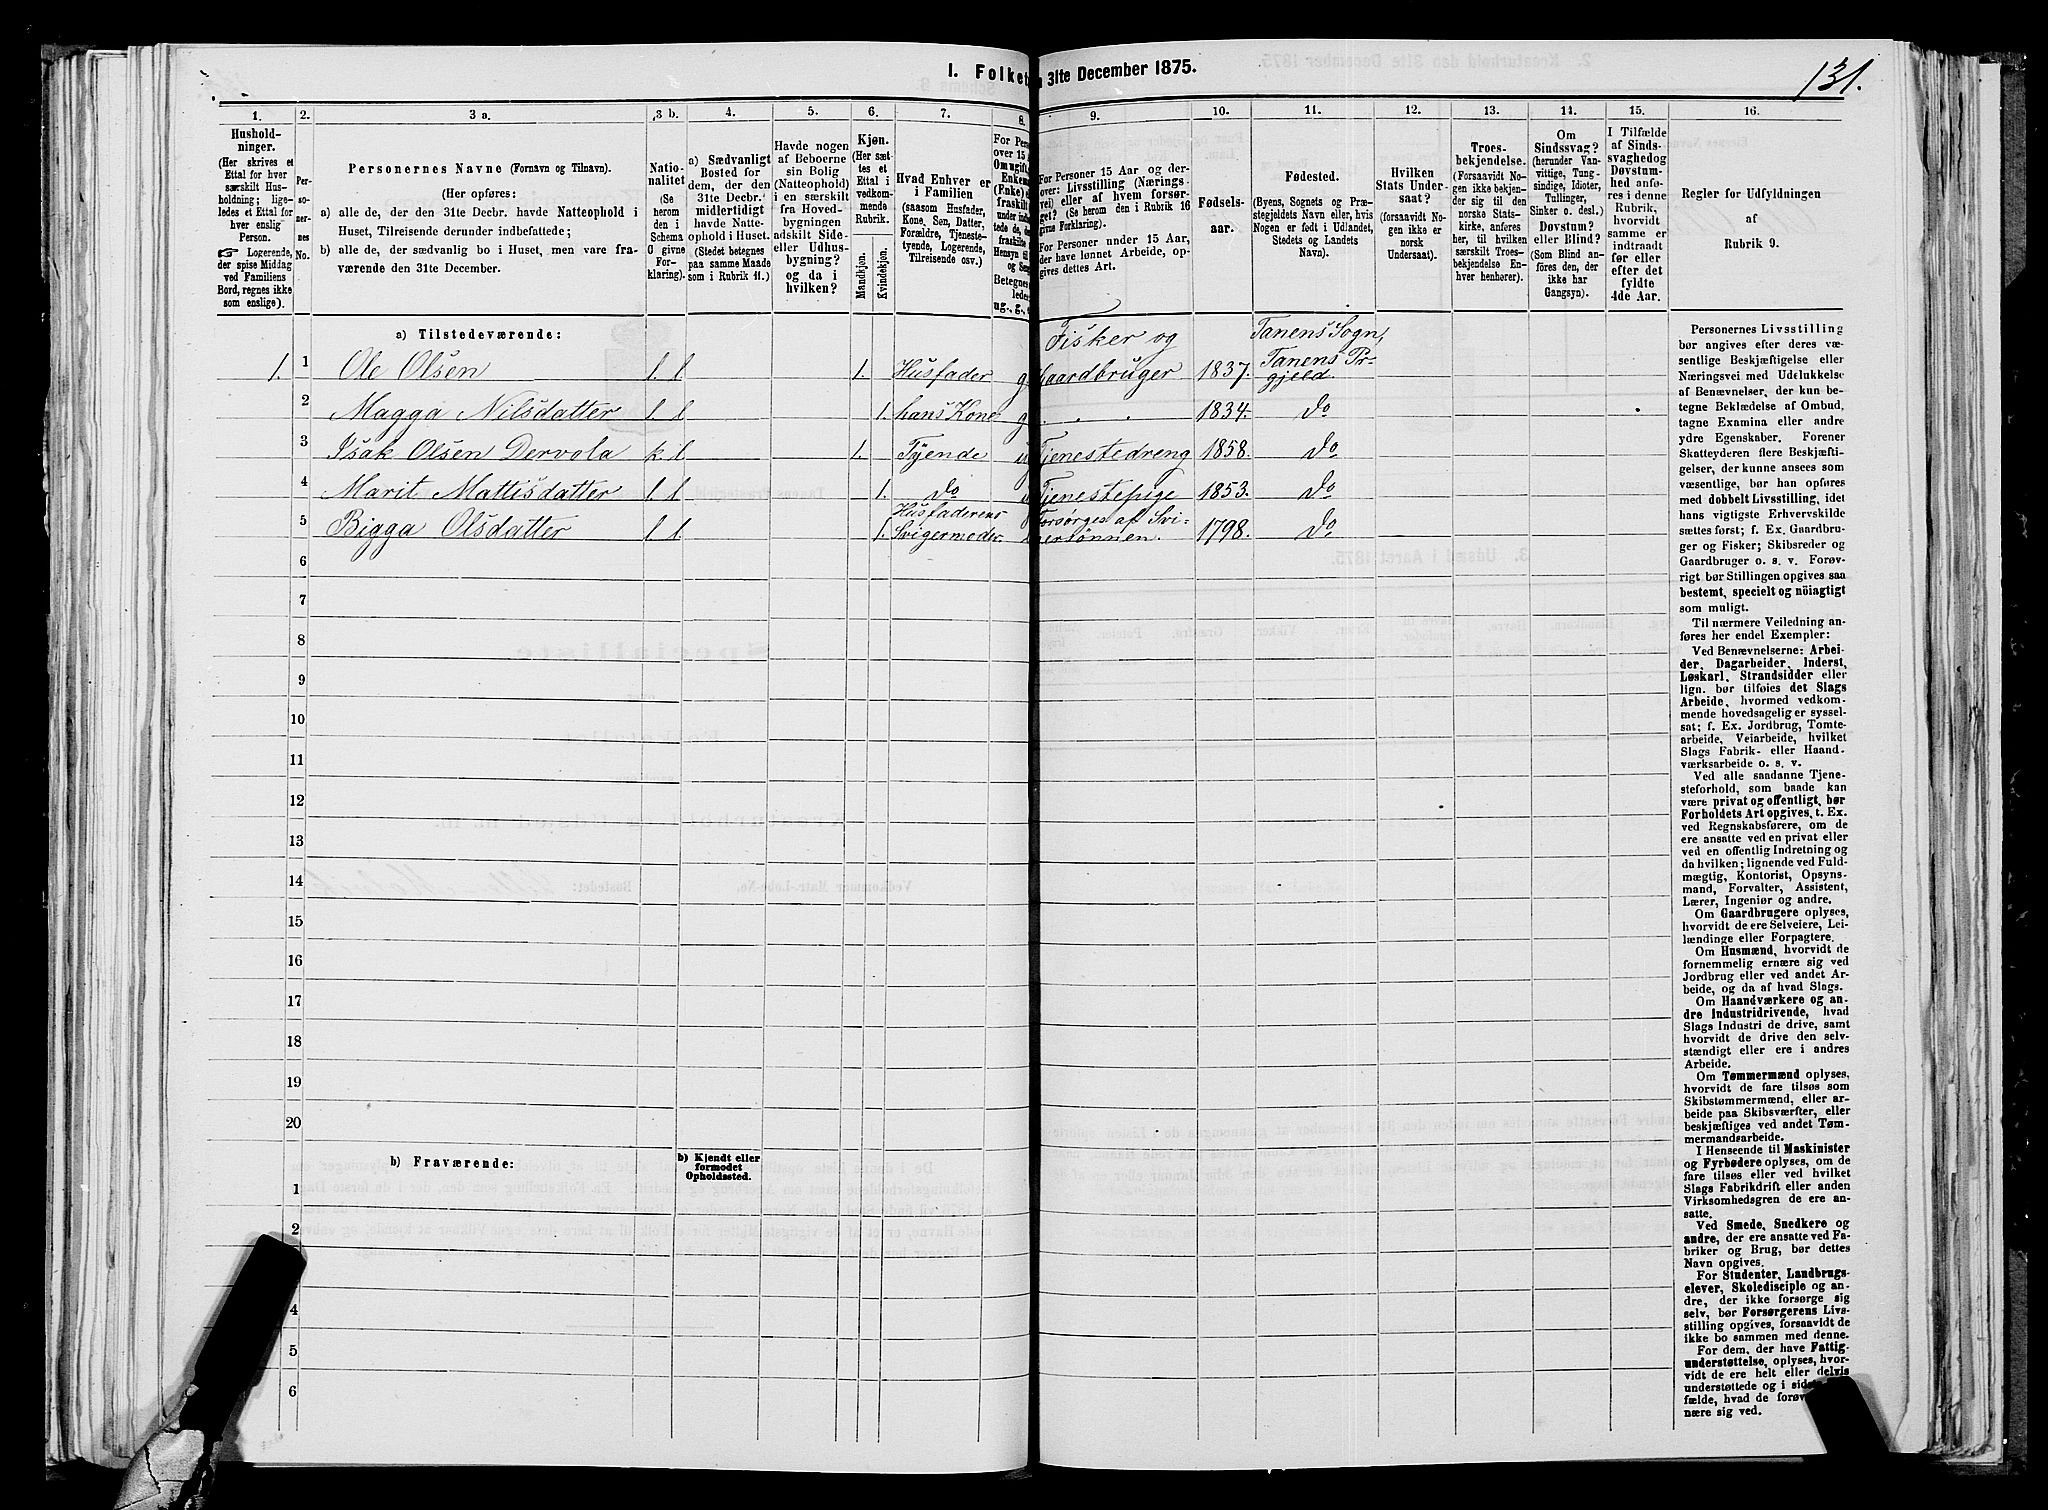 131.
I. Folket
31te December 1875.
1.
2.
3 a.
3 b.
4.
5.
6.
7.
8.
9.
10.
11.
12.
13.
14.
15.
16.
Hushold-
ninger.
(Her skrives et
Ettal for hver
særskilt Hus-
holdning; lige-
ledes et Ettal for
hver enslig
Person.
☞ Logerende,
der spise Middag
ved Familiens
Bord, regnes ikke
som enslige).
Per-
so-
ner-
nes
No.
Personernes Navne (Fornavn og Tilnavn).
(Her opføres:
a) alle de, der den 31te Decbr. havde Natteophold i
Huset, Tilreisende derunder indbefattede;
b) alle de, der sædvanlig bo i Huset, men vare fra-
værende den 31te December.
Natio-
nalitet
(Se
herom
den i
Schema
G givne
For-
klaring).
a) Sædvanligt
Bosted for
dem, der den
31te Decbr.
midlertidigt
havde Natte-
ophold i Huset.
(Stedet betegnes
paa samme Maade
som i Rubrik 11.)
Havde nogen
af Beboerne
sin Bolig
(Natteophold)
i en særskilt
fra Hoved-
bygningen
adskilt Side-
eller Udhus-
bygning?
og da i
hvilken?
Kjøn.
(Her sæt-
tes et
Ettal i
vedkom-
mende
Rubrik.
Mandkjøn.
Kvindekjøn.
Hvad Enhver er
i Familien
(saasom Husfader,
Kone, Søn, Datter,
Forældre, Tjeneste-
tyende, Logerende,
Tilreisende osv.)
For Pers
over 15 A
Omugift
Enkem
(Enke) e
fraskilt
under indb
tede de, d
fraskilte
Hensyn til
og Sen
Betegnes
ledes
ug., g.,
For Personer 15 Aar og der-
over: Livsstilling (Nærings-
vei) eller af hvem forsør-
get? (Se herom den i Rubrik 16
givne Forklaring).
For Personer under 15 Aar,
der have lønnet Arbeide, op-
gives dettes Art.
Fødsels-
aar.
Fødested.
(Byens, Sognets og Præ-
stegjeldets Navn eller, hvis
Nogen er født i Udlandet,
Stedets og Landets
Navn).
Hvilken
Stats Under-
saat?
(forsaavidt No-
gen ikke er
norsk
Undersaat).
Troes-
bekjendelse.
(Forsaavidt No-
gen ikke bekjen-
der sig til den
norske Stats-
kirke, anføres
her, til hvilken
særskilt Troes-
bekjendelse En-
hver henhører).
Om
Sindssvag?
(herunder Van-
vittige, Tung-
sindige, Idioter,
Tullinger,
Sinker o. desl.)
Døvstum?
eller Blind?
(Som Blind an-
føres den, der
ikke har
Gangsyn).
I Tilfælde
af Sinds-
svaghedog
Døvstum-
hed anfø-
res i denne
Rubrik,
hvorvidt
samme er
indtraadt
før eller
efter det
fyldte
4de Aar.
Regler for Udfyldningen
af
Rubrik 9.
a) Tilstedeværende:
1. 1 Ole Olsen l. l 1. Husfader g. Fisker og Gaardbruger 1837. Tanens Sogn, Tanens Pr-gjeld.
2 Magga Nilsdatter l. l 1. hans Kone g. 1834. Do
3 Isak Olsen Dervola k. l 1. Tyende u Tjenestedreng 1858. Do
4 Marit Mattisdatter l. l 1. Do Tjenestepige 1853. Do
5 Bigga Olsdatter l. l 1. Husfaderens Svigermoder Forsørges af Svi-gersønnen. 1798. Do
6
7
8
9
10
11
12
13
14
15
16
17
18
19
20
b) Fraværende:
b) Kjendt eller
formodet
Opholdssted.
1
2
4
5
6
Personernes Livsstilling
bør angives efter deres væ-
sentlige Beskjæftigelse eller
Næringsvei med Udelukkelse
af Benævnelser, der kun be-
tegne Beklædelse af Ombud,
tagne Examina eller andre
ydre Egenskaber. Forener
Skatteyderen flere Beskjæfti-
gelser, der kunne ansees som
væsentlige, bør han opføres
med dobbelt Livsstilling, idet
hans vigtigste Erhvervskilde
sættes først; f. Ex. Gaardbru-
ger og Fisker; Skibsreder og
Gaardbruger o. s. v. Forøv-
rigt bør Stillingen opgives saa
bestemt, specielt og nöiagtigt
som muligt.
Til nærmere Veiledning an-
føres her endel Exempler:
Ved Benævnelserne: Arbei-
der, Dagarbeider, Inderst,
Løskarl, Strandsidder eller
lign. bør tilføies det Slags
Arbeide, hvormed vedkom-
mende hovedsagelig er syssel-
sat; f. Ex. Jordbrug, Tomte-
arbeide, Veiarbeide, hvilket
Slags Fabrik- eller Haand-
værksarbeide o. s. v.
Ved alle saadanne Tjene-
steforhold, som baade kan
være privat og offentligt, bør
Forholdets Art opgives, t. Ex.
ved Regnskabsførere, om de
ere ansatte ved en privat eller
ved en offentlig Indretning og
da hvilken; lignende ved Fuld-
mægtig, Kontorist, Opsyns-
mand, Forvalter, Assistent,
Lærer, Ingeniør og andre.
Om Gaardbrugere oplyses,
hvorvidt de ere Selveiere, Lei-
lændinge eller Forpagtere.
Om Husmænd, hvorvidt de
fornemmelig ernære sig ved
Jordbrug eller ved andet Ar-
beide, og da af hvad Slags.
Om Haandværkere og an-
dre Industridrivende, hvad
Slags Industri de drive, samt
hvorvidt de drive den selv-
stændigt eller ere i andres
Arbeide.
Om Tømmermænd oplyses,
hvorvidt de fare tilsøs som
Skibstømmermænd, eller ar-
beide paa Skibsværfter, eller
beskjæftiges ved andet Tøm-
mermandsarbeide.
I Henseende til Maskinister
og Fyrbødere oplyses, om de
fare tilsøs eller ved hvilket
Slags Fabrikdrift eller anden
Virksomhedsgren de ere an-
satte.
Ved Smede, Snedkere og
andre, der ere ansatte ved Fa-
briker og Brug, bør dettes
Navn opgives.
For Studenter, Landbrugs-
elever, Skoledisciple og an-
dre, der ikke forsørge sig
selv, bør Forsørgerens Livs-
stilling opgives, forsaavidt de
ikke bo sammen med denne.
For dem, der have Fattig-
understøttelse, oplyses, hvor-
vidt de ere helt eller delvis
understøttede og i sidste
fælde, hvad de forøv
nære sig ved.